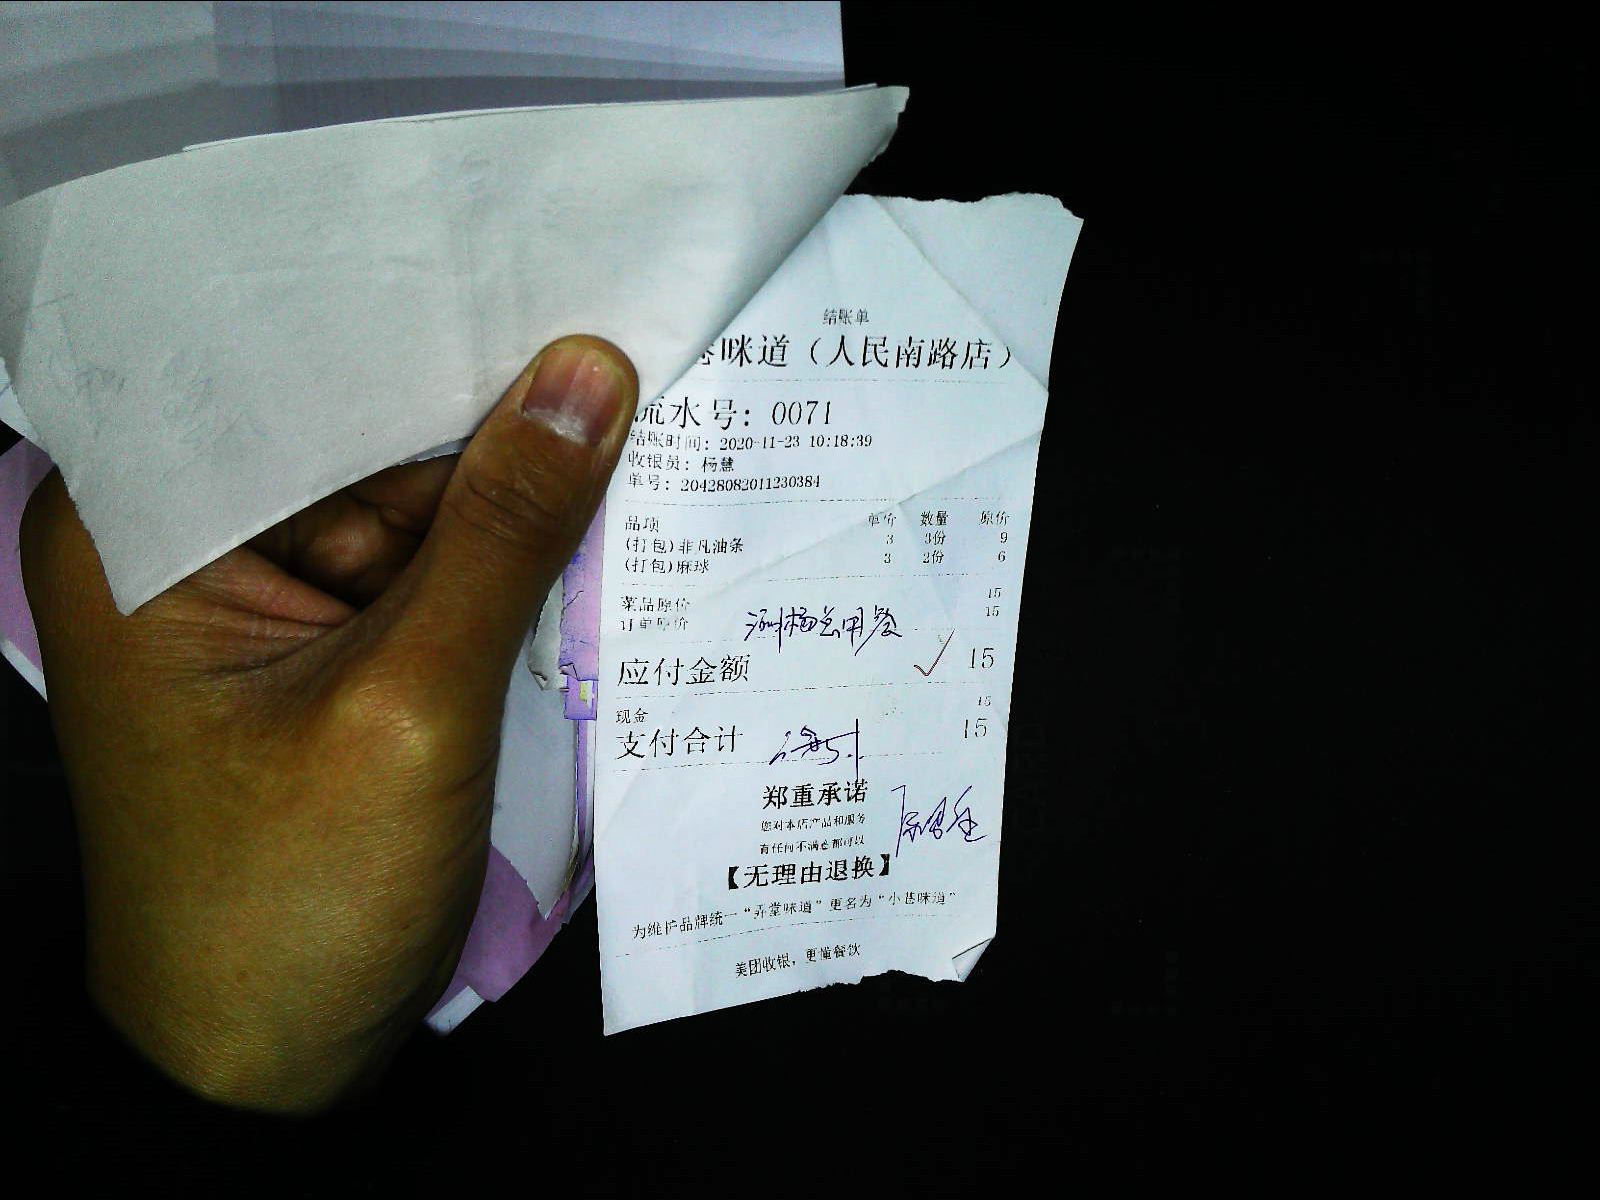 结账单
巷咪道（人民南路店）
流水号: 0071
结账时间: 2020-11-23 10:18:39
收银员: 杨慧
单号: 20428082011230384
品项 单价 数量 原价
(打包)非凡油条 3 3份 9
(打包)麻球 3 2份 6
菜品原价 15
订单原价 15
杨总用餐
应付金额 15
现金 15
支付合计 15
郑重承诺
您对本店产品和服务
有任何不满意都可以
【无理由退换】
为维护品牌统一“弄堂咪道”更名为“小巷咪道”
美团收银，更懂餐饮